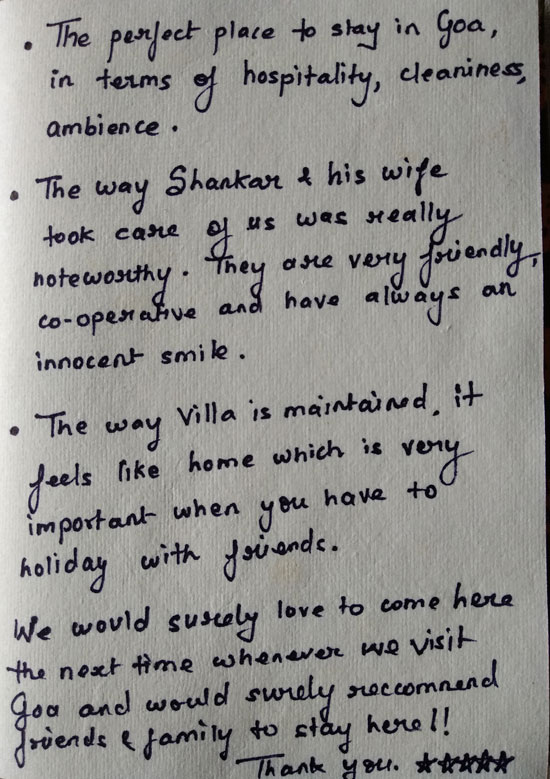 • The perfect place to stay in Goa,
in terms of hospitality, cleaniness,
ambience.
• The way Shankar & his wife
took care of us was really
noteworthy. They are very friendly,
co-operative and have always an
innocent smile.
• The way Villa is maintained, it
feels like home which is very
important when you have to
holiday with friends.
We would surely love to come here
the next time whenever we visit
Goa and would surely reccomnend
friends & family to stay here!!
Thank you. ★★★★★